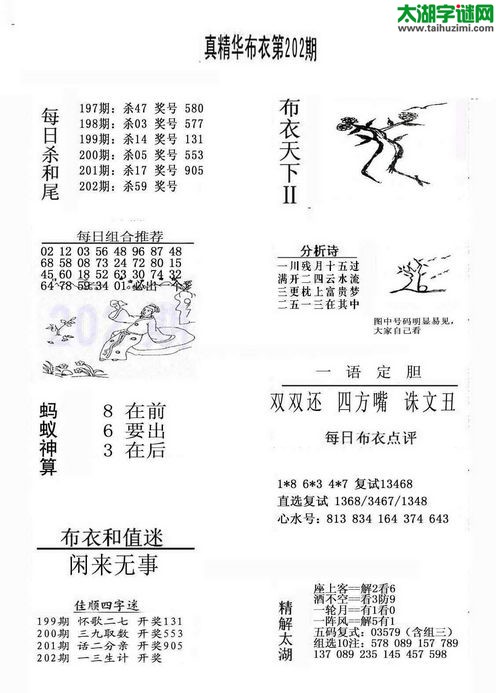 太湖字谜网
www.taihuzimi.com
真精华布衣第202期
每日杀和尾
197期: 杀47 奖号 580
198期: 杀03 奖号 577
199期: 杀14 奖号 131
200期: 杀05 奖号 553
201期: 杀17 奖号 905
202期: 杀59 奖号
布衣天下II
每日组合推荐
02 12 03 56 48 96 87 48
68 58 08 73 24 72 80 15
45 60 18 52 63 30 74 32
64 78 59 34 01 必出一个
分析诗
一川残月十五过
满开二四云水流
三更枕上富贵梦
二五一三在其中
图中号码明显易见,
大家自己看
一语定胆
双双还 四方嘴 诛文丑
蚂蚁神算
8 在前
6 要出
3 在后
每日布衣点评
1*8 6*3 4*7 复试13468
直选复试 1368/3467/1348
心水号: 813 834 164 374 643
布衣和值迷
闲来无事
佳顺四字迷
199期 怀歌二七 开奖131
200期 三九取数 开奖553
201期 话二分亲 开奖905
202期 一三生计 开奖
精解太湖
座上客==解2看6
酒不空==看3防9
一轮月==有1看0
一阵风==解5有1
五码复式: 03579 (含组三)
组选10注: 578 089 157 789
137 089 235 145 457 598